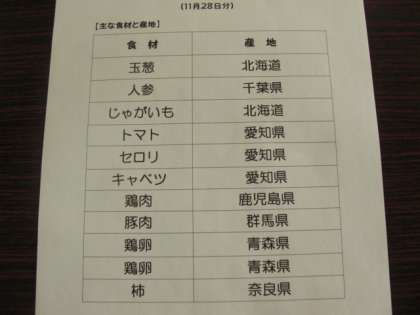 (11月28日分)
【主な食材と産地】
食材 産地
玉葱 北海道
人参 千葉県
じゃがいも 北海道
トマト 愛知県
セロリ 愛知県
キャベツ 愛知県
鶏肉 鹿児島県
豚肉 群馬県
鶏卵 青森県
鶏卵 青森県
柿 奈良県